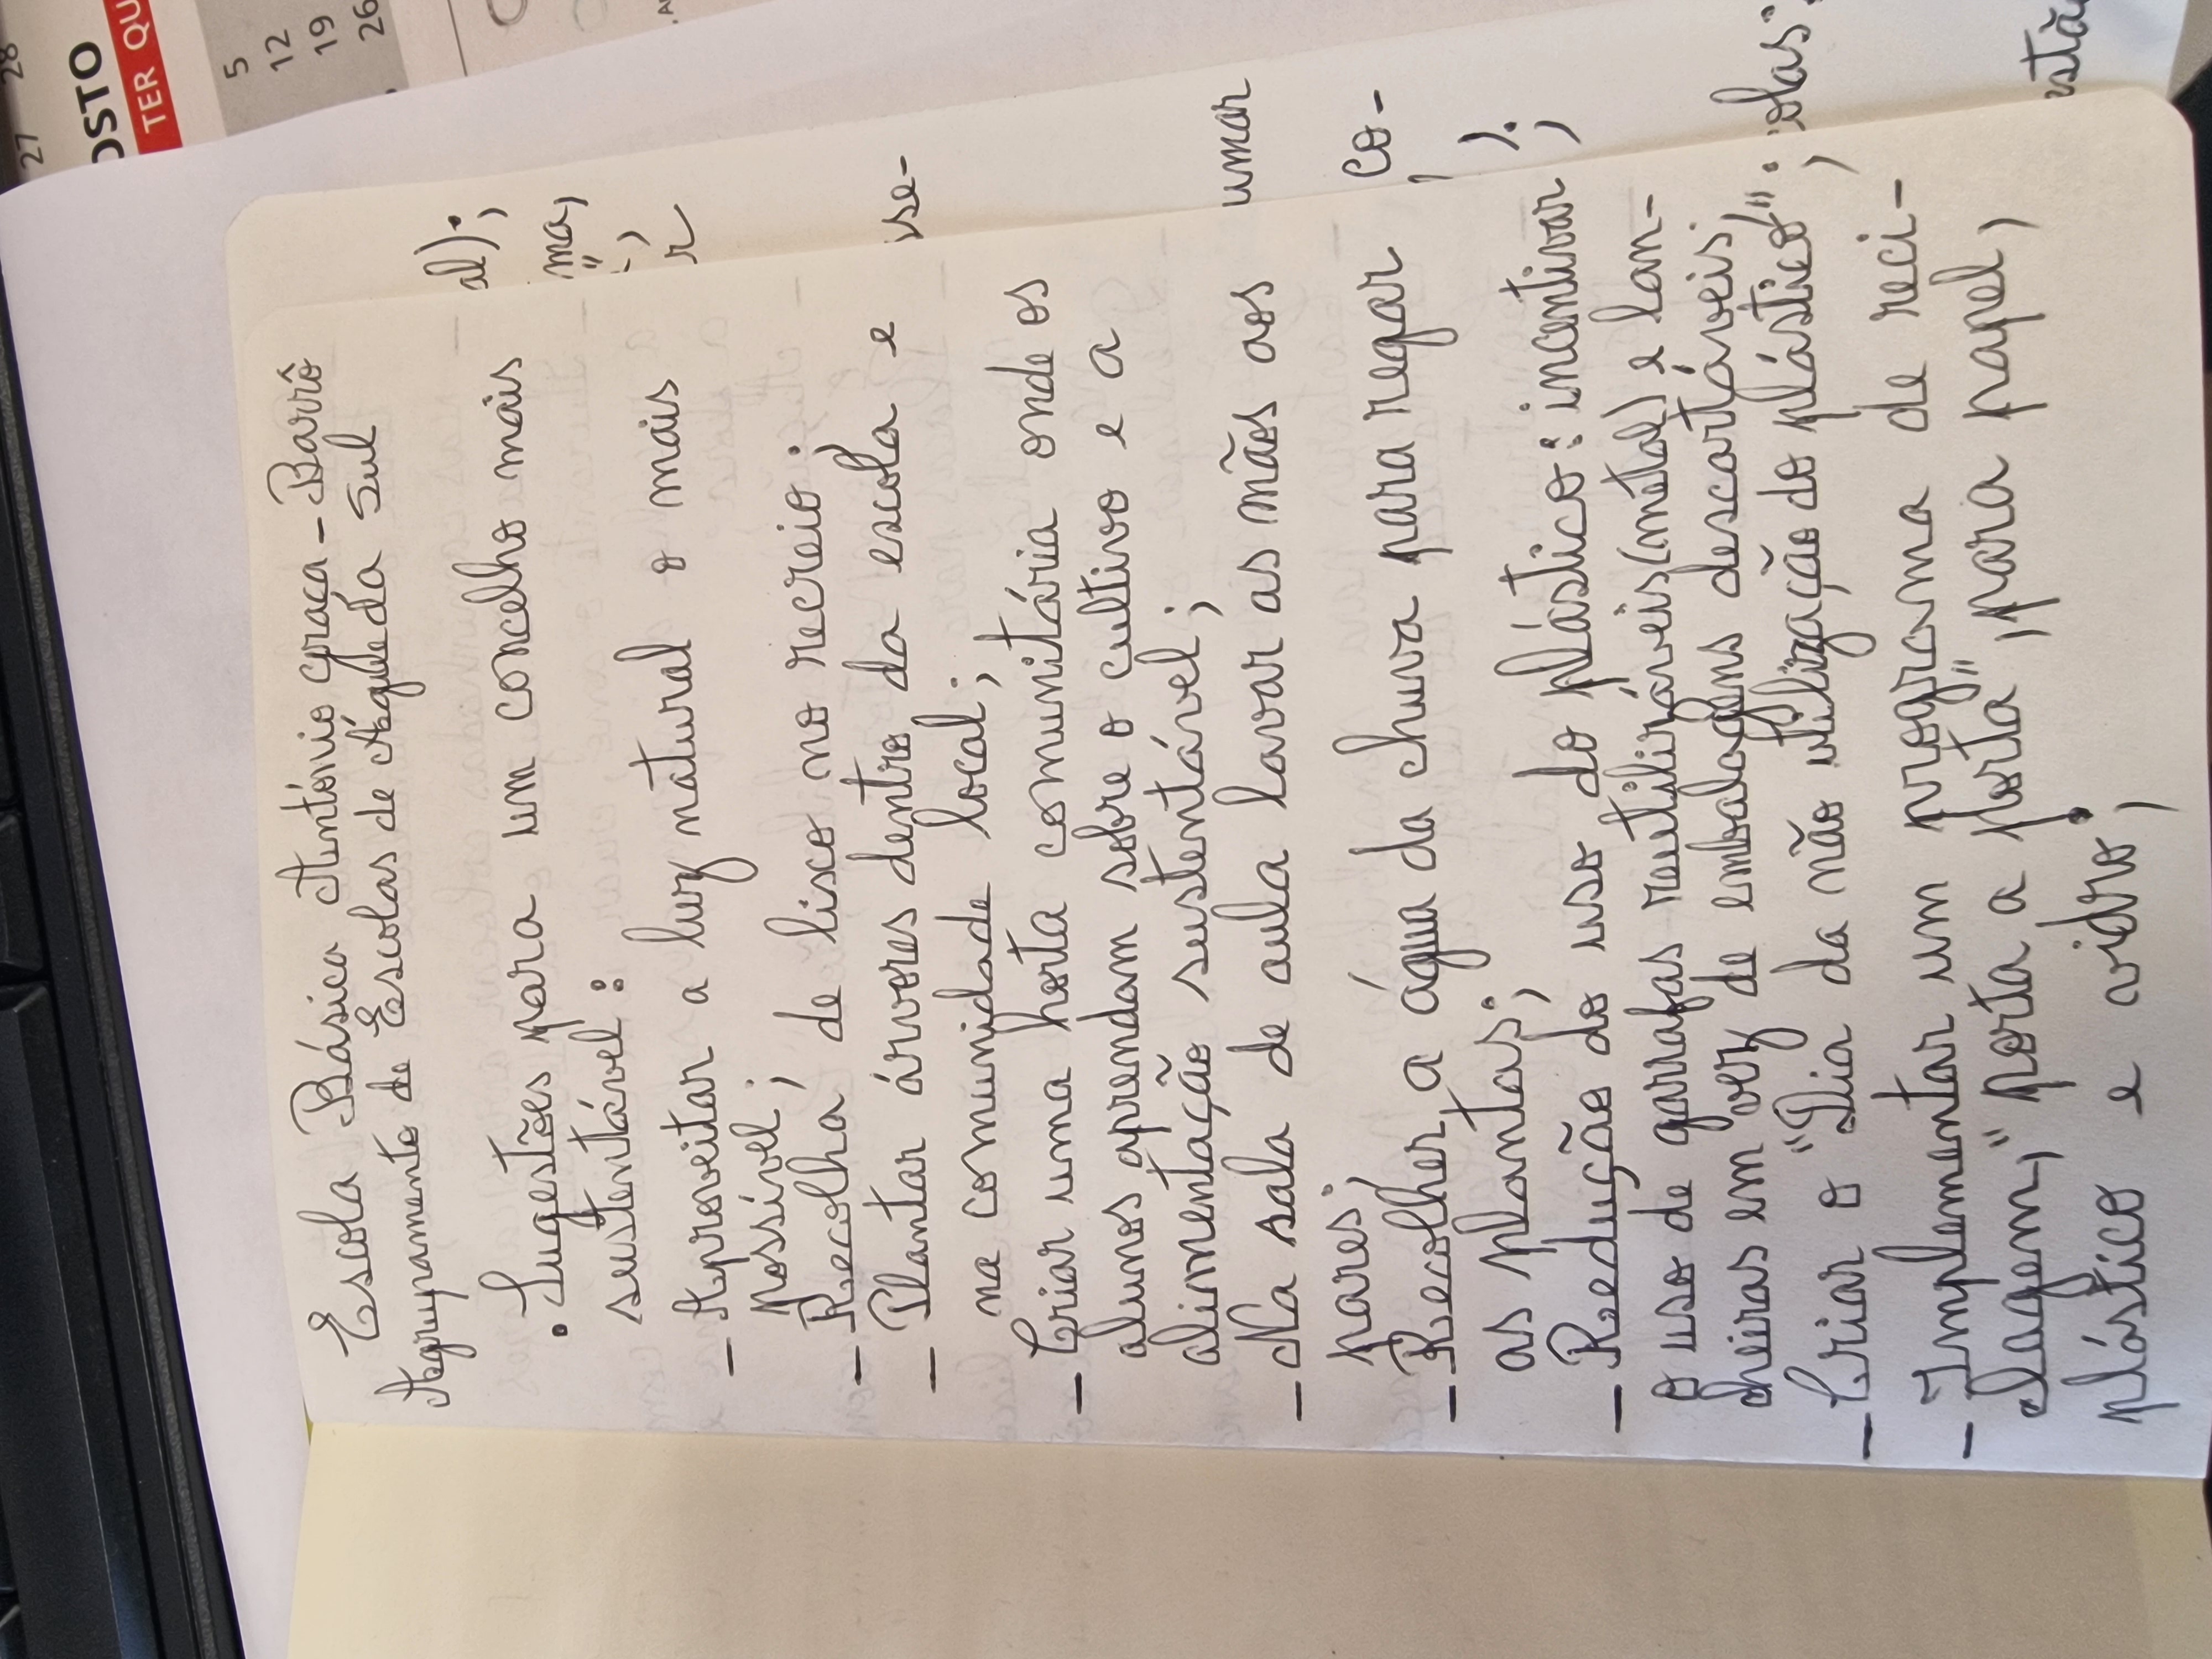 Escola Básica António Graça - Barrô
Agrupamento de Escolas de Águeda Sul
• Sugestões para um concelho mais
sustentável:
- Aproveitar a luz natural o mais
possível;
- Recolha de lixo no recreio;
- Plantar árvores dentro da escola e
na comunidade local;
- Criar uma horta comunitária onde os
alunos aprendam sobre o cultivo e a
alimentação sustentável;
- Na sala de aula lavar as mãos aos
pares;
- Recolher a água da chuva para regar
as plantas;
- Redução do uso do plástico: incentivar
o uso de garrafas reutilizáveis (metal) e lan-
cheiras em vez de embalagens descartáveis;
- Criar o "Dia da não utilização do plástico";
- Implementar um programa de reci-
clagem, "porta a porta", para papel,
plástico e vidro;
al);
ma,
";
r
se-
umar
co-
);
olas;
stão
OSTO
TER QU
5
12
19
26
27 28